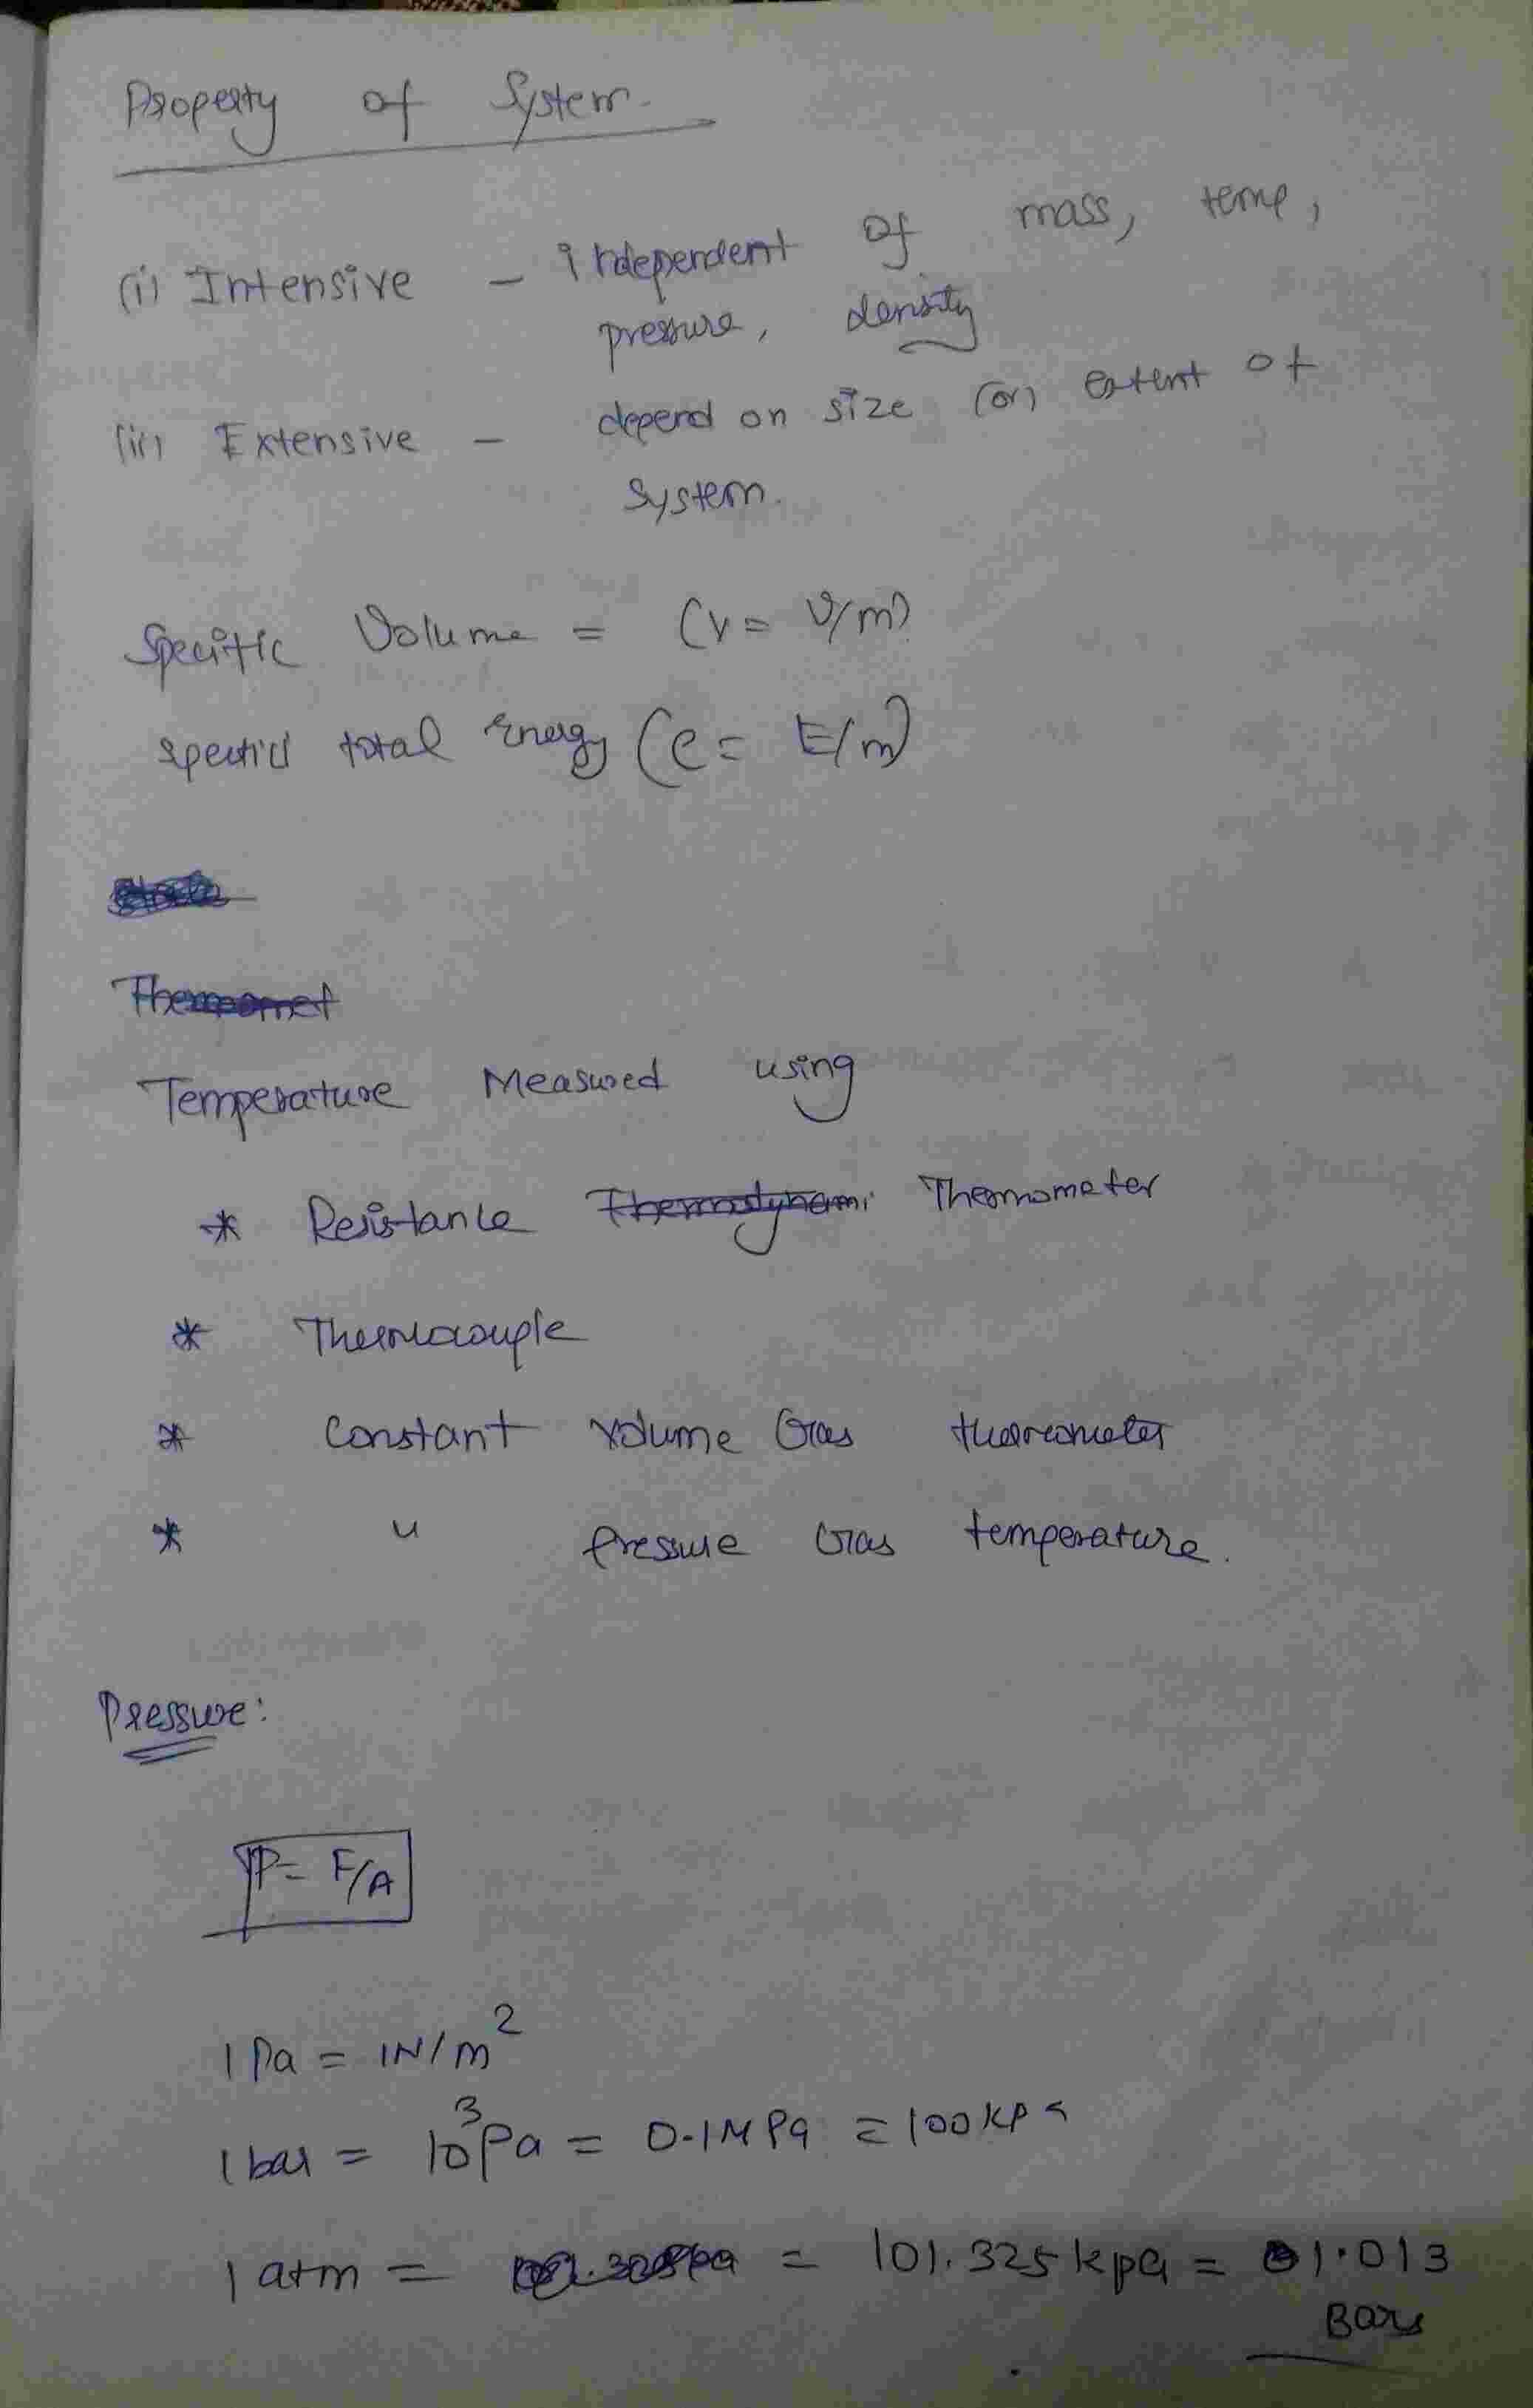 Property of System
(i) Intensive - independent of mass, temp,
pressure, density
(ii) Extensive - depend on size (or) extent of
System.
Specific Volume = (v = V/m)
specific total Energy (e = E/m)
Themomet
Temperature Measured using
* Resistance Thermodynami Thermometer
* Thermocouple
* Constant volume Gas thermometer
* " Pressure Gas temperature.
Pressure:
P = F/A
1 Pa = 1N/m²
1 bar = 10³Pa = 0.1MPa = 100kpa
1 atm = = 101.325 kpa = 1.013
Bars